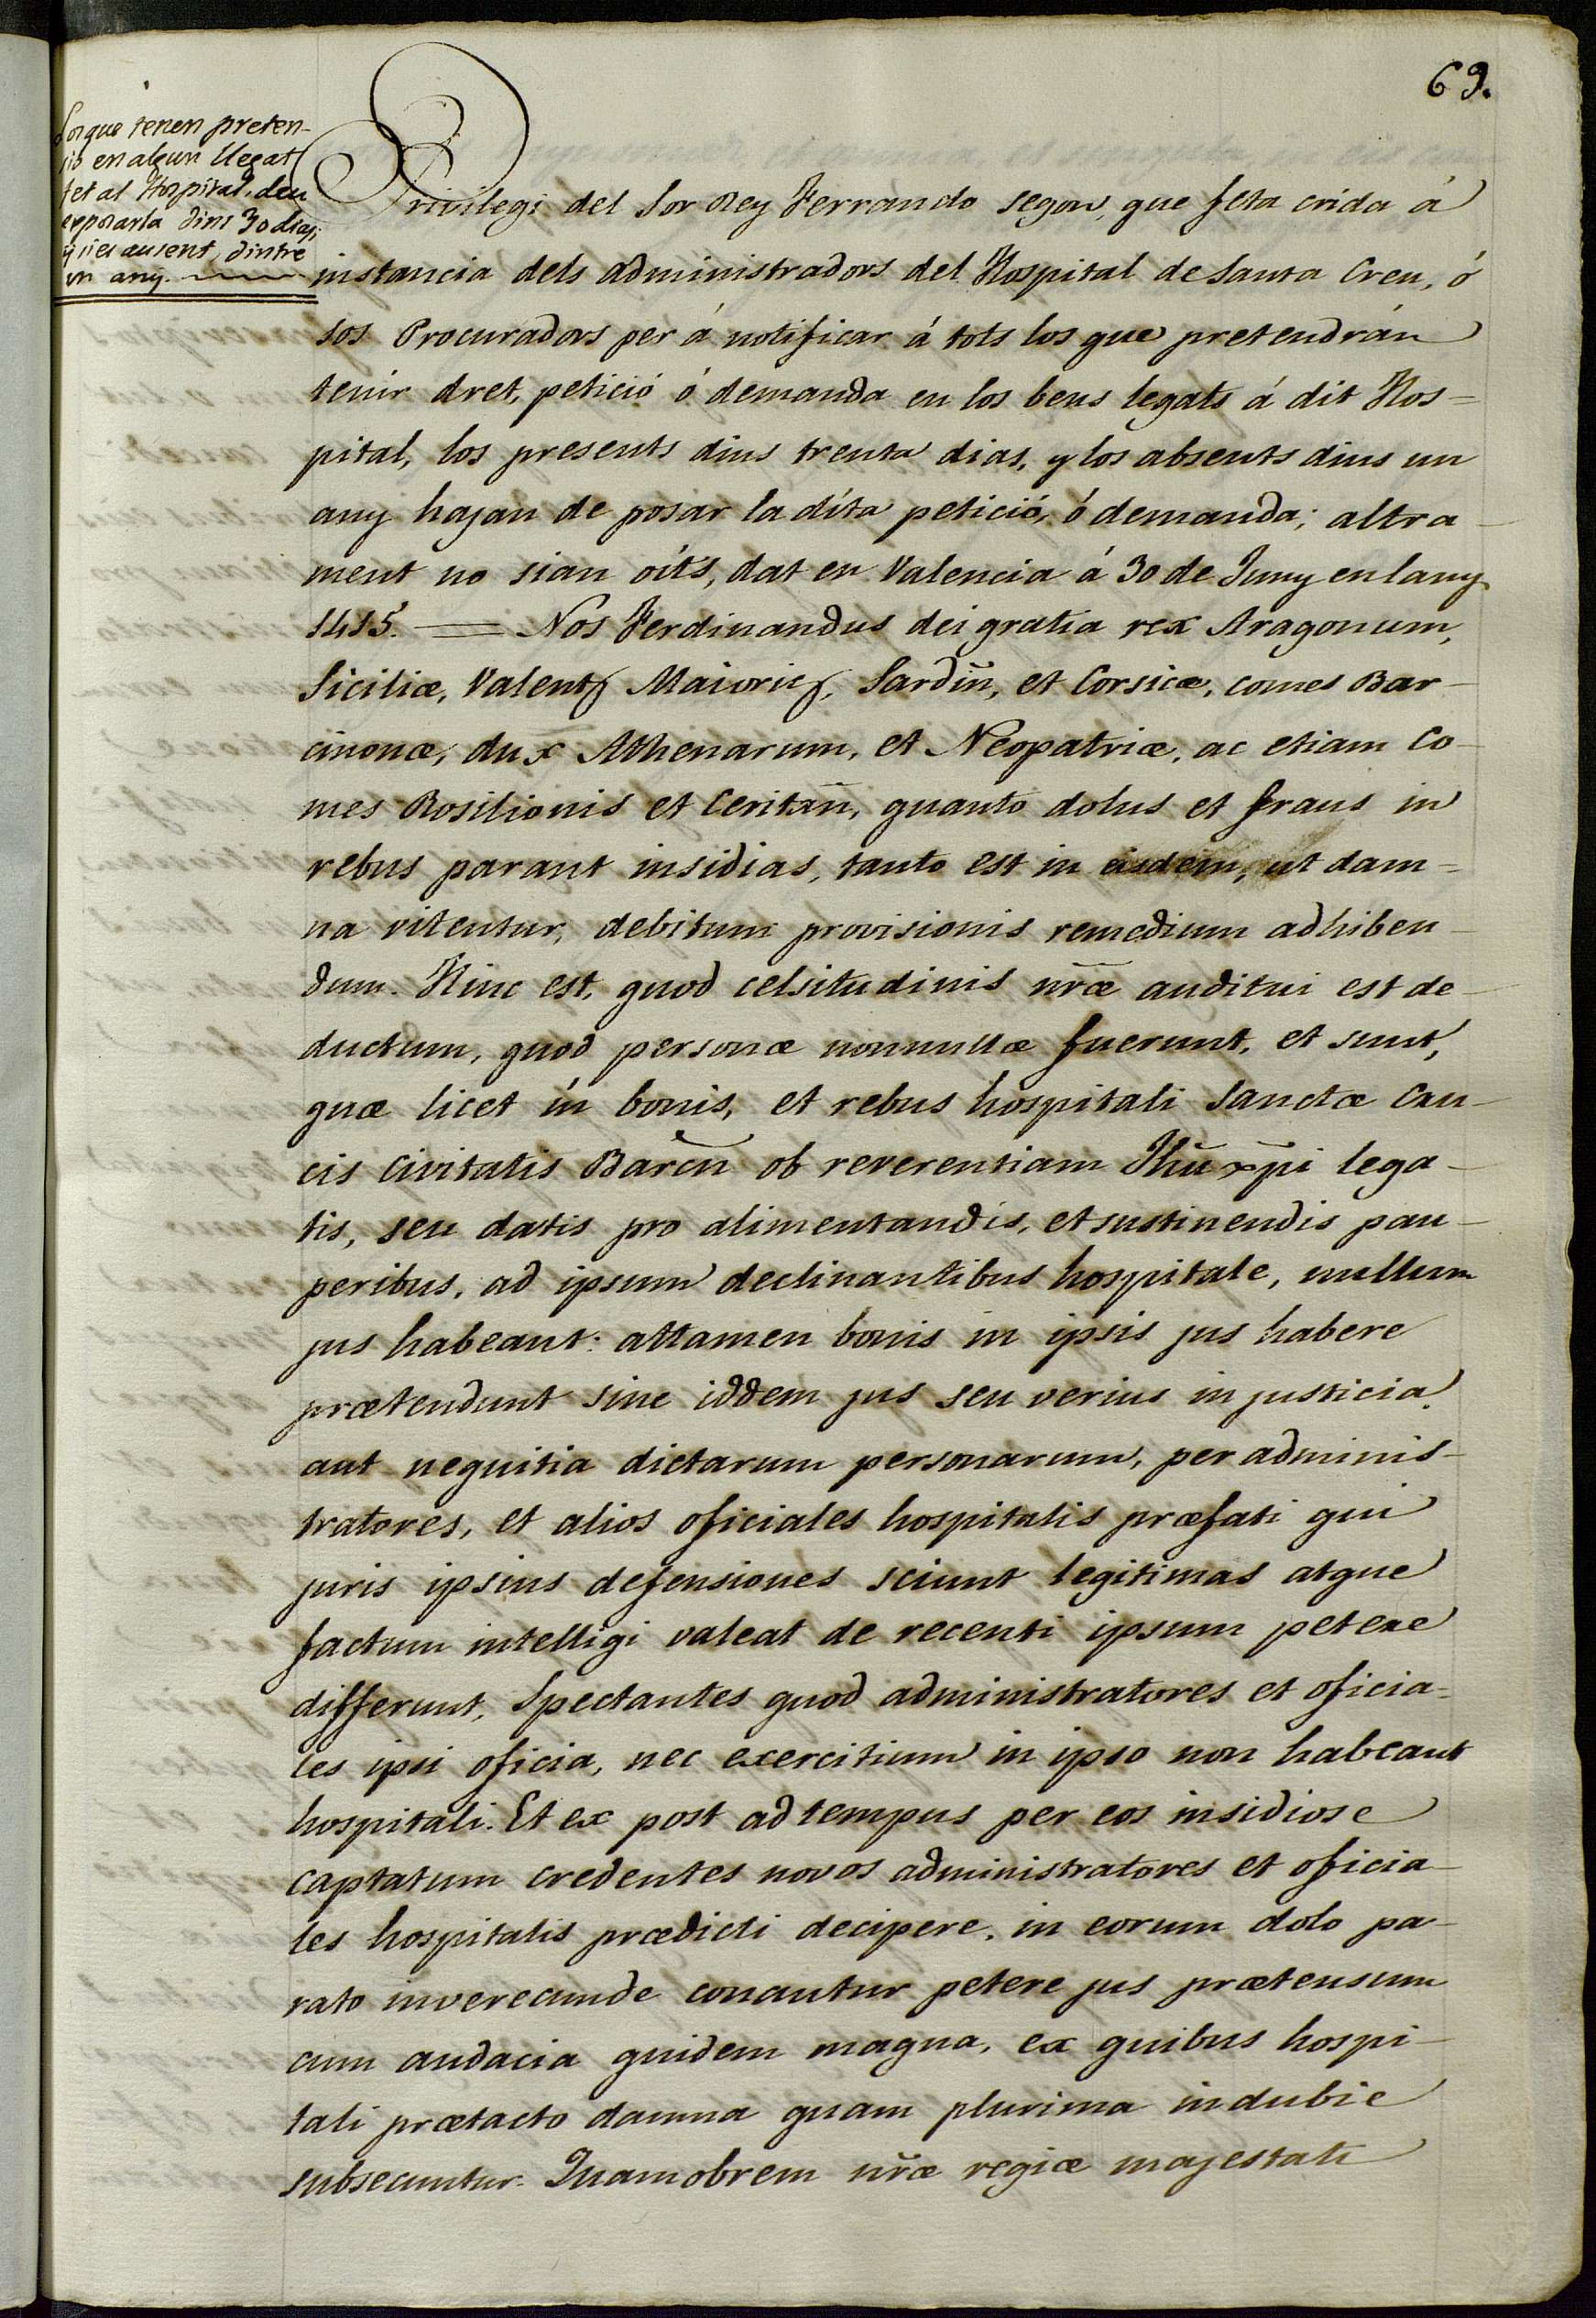 69.
Los que tenen preten-
sió en algun llegat
fet al Hospital, deu
exposarla dins 30 dias,
y si es ausent, dintre
un any.
Privilegi del Sor Rey Ferrando segon, que feta crida á
instancia dels administradors del Hospital de Santa Creu, ó
sos Procuradors per á notificar á tots los que pretendrán
tenir dret, petició ó demanda en los bens legats á dit Hos=
pital, los presents dins trenta dias, y los absents dins un
any hajan de posar la dita petició, ó demanda; altra-
ment no sian oits, dat en Valencia á 30 de Juny en lany
1415. = Nos Ferdinandus dei gratia rex Aragonum,
Siciliæ, Valentȩ Maioricȩ, Sardiñ, et Corsicæ, comes Bar-
cinonæ, dux Athenarum, et Neopatriæ, ac etiam Co-
mes Rosilionis et Ceritañ, quanto dolus et fraus in
rebus parant insidias, tanto est in eisdem, ut dam=
na vitentur, debitum provisionis remedium adhiben-
dum. Hinc est, quod celsitudinis nr̃æ auditui est de-
ductum, quod personæ nonnullæ fuerunt, et sunt,
quæ licet in bonis, et rebus hospitali Sanctæ Cru-
cis Civitatis Barcñ ob reverentiam Jhũ xp̃i lega-
tis, seu datis pro alimentandis, et sustinendis pau-
peribus, ad ipsum declinantibus hospitale, nullum
jus habeant: attamen bonis in ipsis jus habere
prætendunt sine iddem jus seu verius injusticia
aut nequitia dictarum personarum, per adminis-
tratores, et alios oficiales hospitalis præfati qui
juris ipsius defensiones sciunt legitimas atque
factum intelligi valeat de recenti ipsum petere
differunt, Spectantes quod administratores et oficia=
les ipsi oficia, nec exercitium in ipso non habeant
hospitali. Et ex post ad tempus per eos insidiose
captatum credentes novos administratores et oficia-
les hospitalis prædicti decipere, in eorum dolo pa-
rato inverecunde conantur petere jus prætensum
cum audacia quidem magna, ex quibus hospi-
tali prætacto damna quam plurima indubie
subsecuntur. Quamobrem nr̃æ regiæ majestati